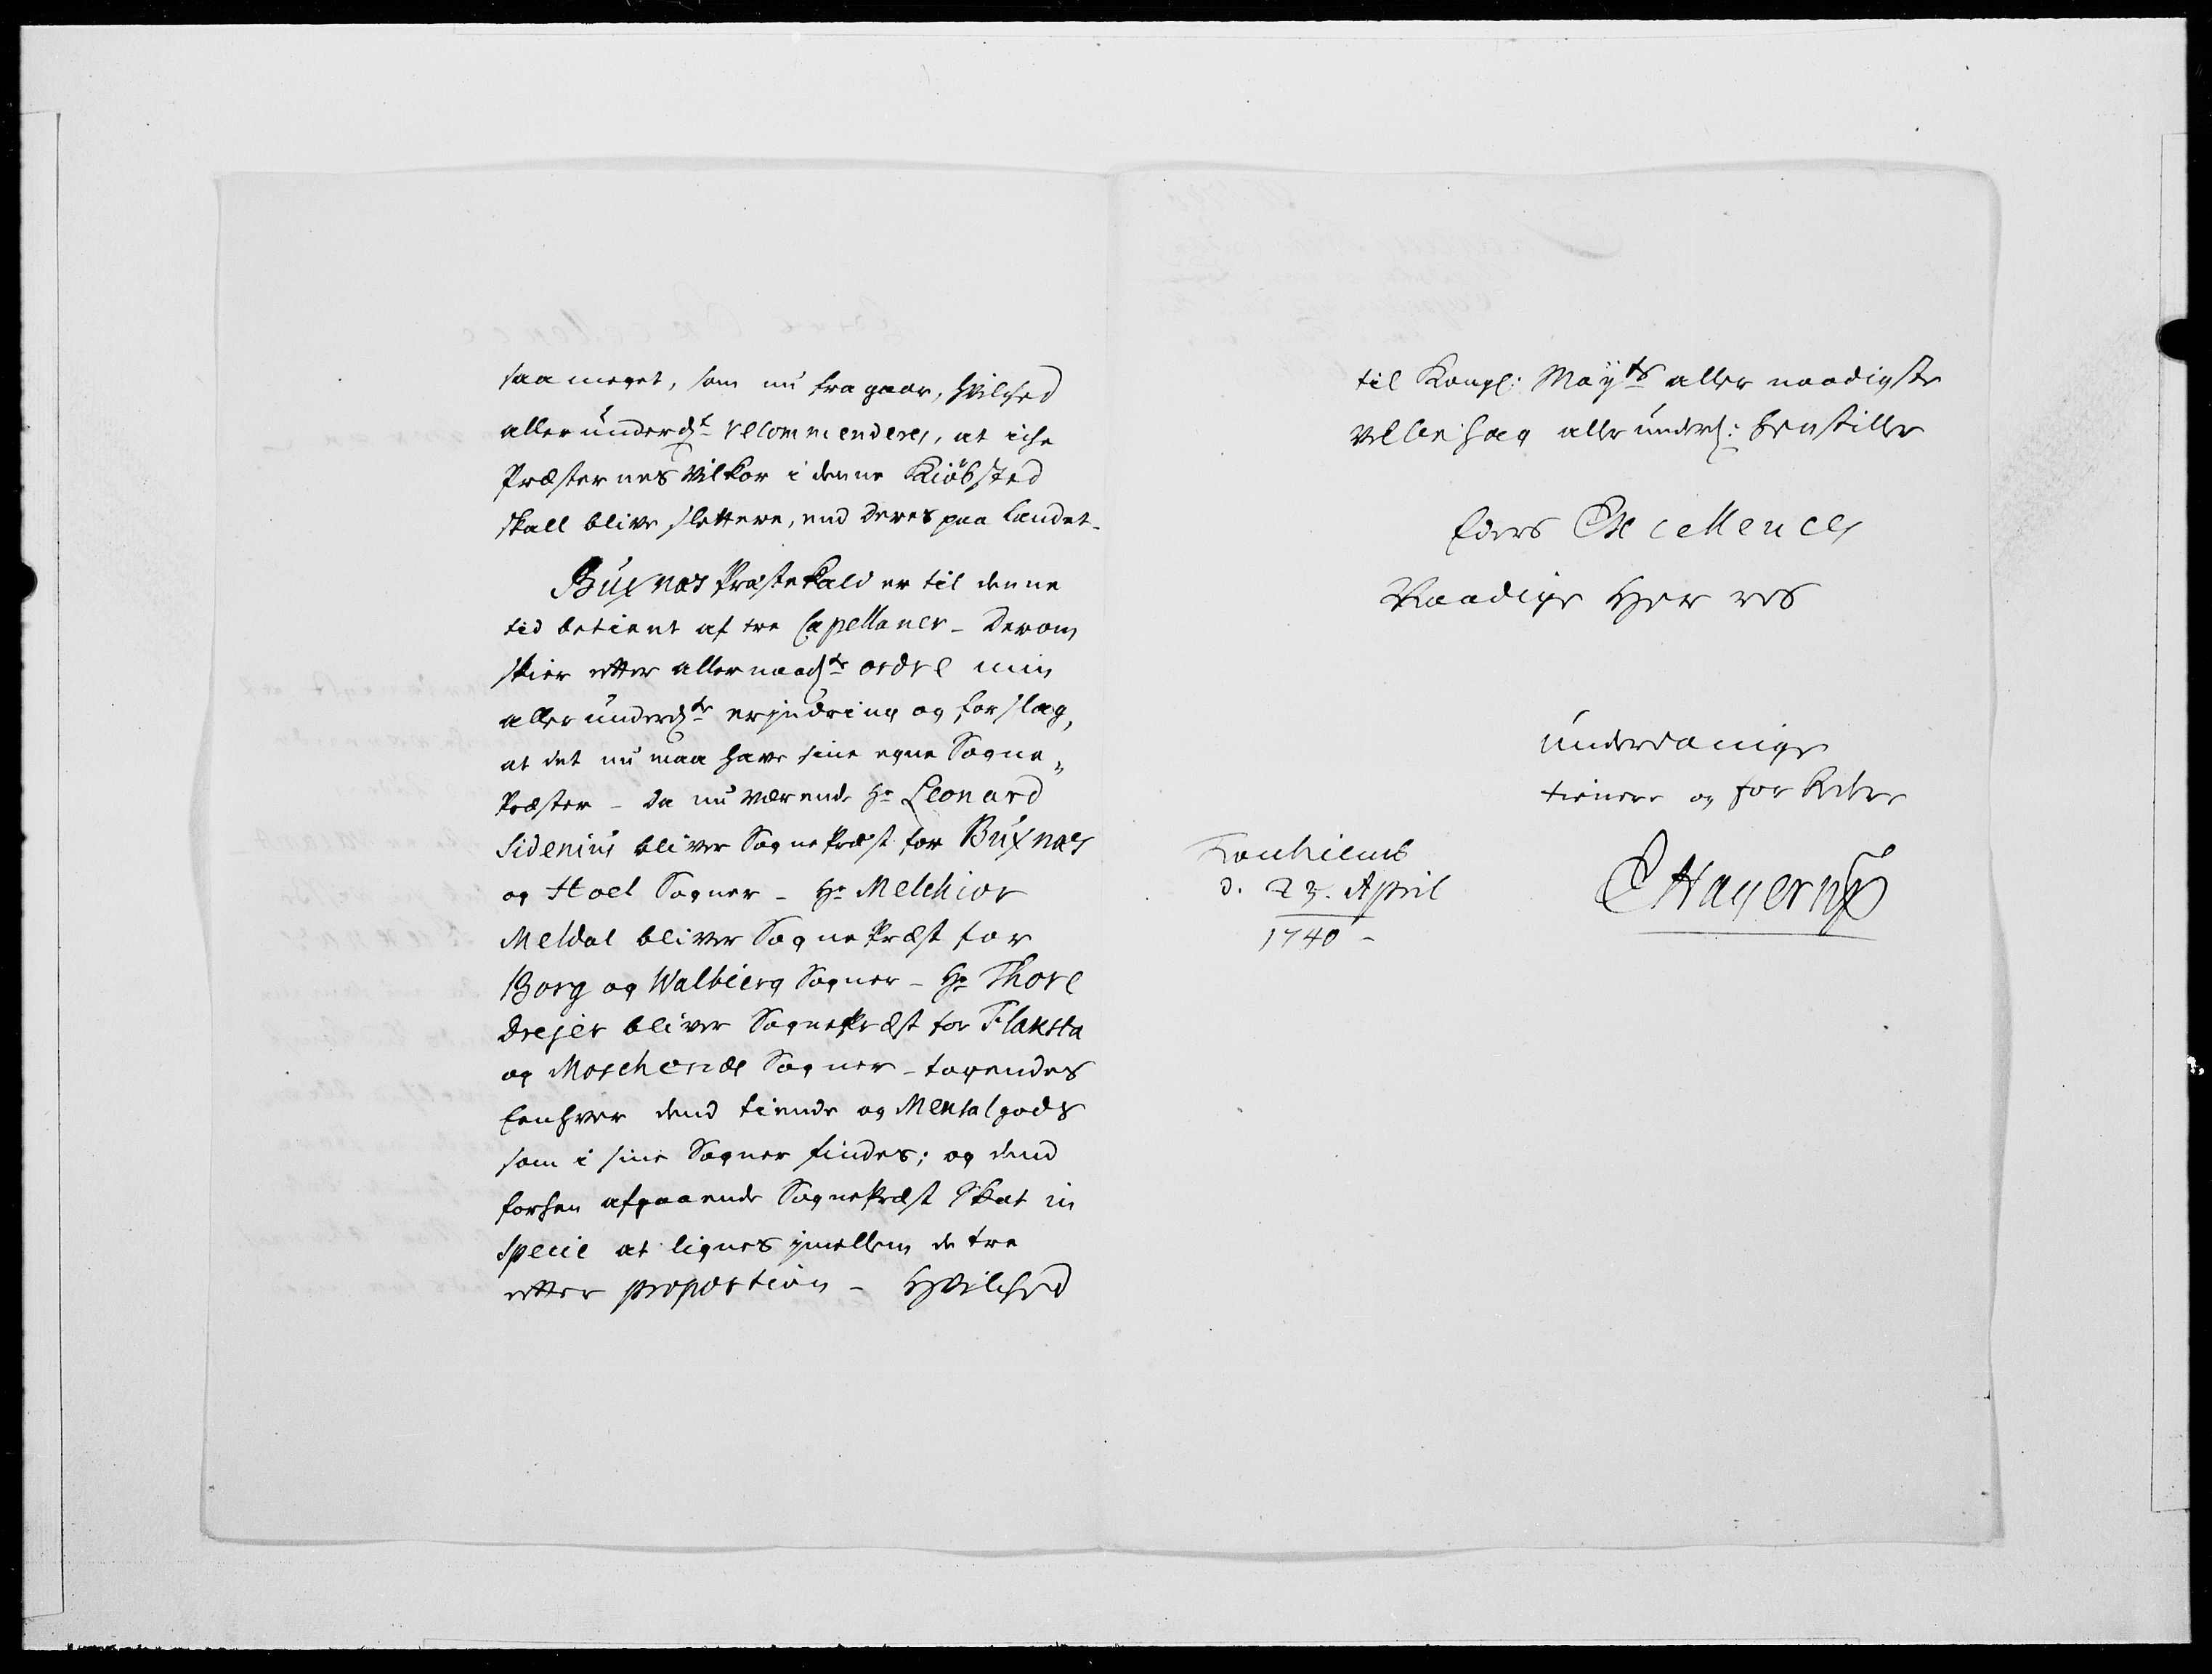 saa meget, som nu fragaar, hvilched
allerunderdst recommenderes, at iche
Præsternes Vilkor i denne Kiöbsted
skall blive slettere, end deres paa Landet.
Buxnæs Præstekald er til denne
tid betient af tre Capellaner - Derom
skier etter allernaadste ordre min
allerunderdste erindring og forslag,
at det nu maa have sine egne Sogne„
Præster - da nu værende Hr Leonard
Sidenius bliver Sognepræst for Buxnæs
og Hoel Sogner - Hr Melchior
Meldal bliver Sognepræst for
Borg og Walbierg Sogner - Hr Thore
Drejer bliver Sognepræst for Flaksta
og Moschenæs Sogner - tagendes
Eenhver dend tiende og Mensalgods
som i sine Sogner findes; og dend
forhen afgaaende Sognepræst Skat in
specie at lignes imellem de tre
etter proportion - Hvilched
til Kongl: Mayts aller naadigste
Velbehag allerunderd: henstiller
Eders Excellences
Naadige Herres
underdanige
tienere og forbeder
Tronhiem
d. 23. April
1740 -
EHagerup